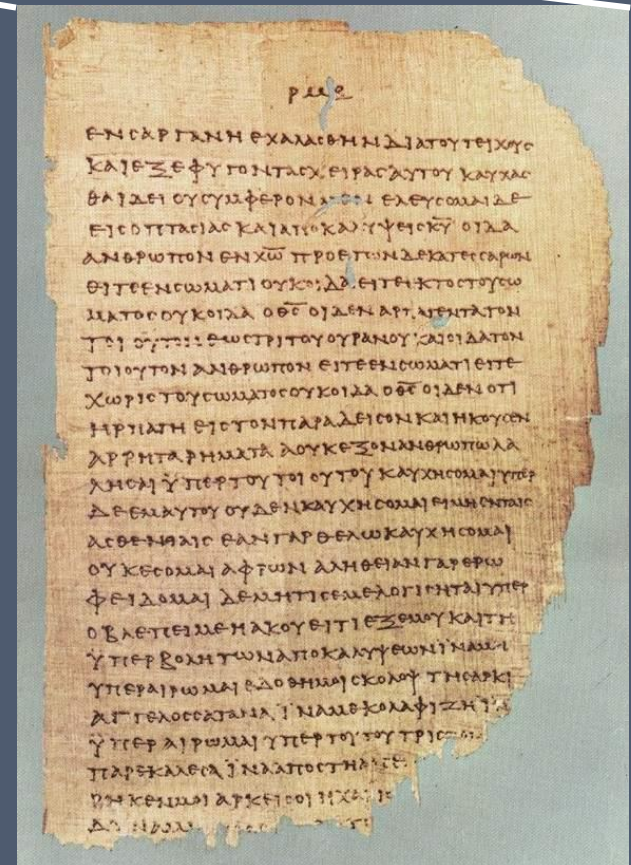 ΡΜΘ
ΕΝϹΑΡΓΑΝΗ ΕΧΑΛΑϹΘΗΝ ΔΙΑΤΟΥΤΕΙΧΟΥϹ
ΚΑΙΕΞΕΦΥΓΟΝΤΑϹΧΕΙΡΑϹΑΥΤΟΥ ΚΑΥΧΑϹ
ΘΑΙΔΕΙ ΟΥϹΥΜΦΕΡΟΝ ΜΕΝ ΕΛΕΥϹΟΜΑΙΔΕ
ΕΙϹΟΠΤΑϹΙΑϹ ΚΑΙΑΠΟΚΑΛΥΨΕΙϹΚ̅Υ̅ ΟΙΔΑ
ΑΝΘΡΩΠΟΝ ΕΝΧ̅Ω̅ ΠΡΟΕΤΩΝΔΕΚΑΤΕϹϹΑΡΩΝ
ΕΙΤΕΕΝϹΩΜΑΤΙΟΥΚΟΙΔΑ ΕΙΤΕΕΚΤΟϹΤΟΥϹΩ
ΜΑΤΟϹΟΥΚΟΙΔΑ ΟΘ̅Ϲ̅ ΟΙΔΕΝ ΑΡΠΑΓΕΝΤΑΤΟΝ
ΤΟΙΟΥΤΟΝΕΩϹΤΡΙΤΟΥΟΥΡΑΝΟΥ ΚΑΙΟΙΔΑΤΟΝ
ΤΟΙΟΥΤΟΝ ΑΝΘΡΩΠΟΝ ΕΙΤΕΕΝϹΩΜΑΤΙΕΙΤΕ
ΧΩΡΙϹΤΟΥϹΩΜΑΤΟϹΟΥΚΟΙΔΑ ΟΘ̅Ϲ̅ ΟΙΔΕΝ ΟΤΙ
ΗΡΠΑΓΗ ΕΙϹΤΟΝΠΑΡΑΔΕΙϹΟΝ ΚΑΙΗΚΟΥϹΕΝ
ΑΡΡΗΤΑΡΗΜΑΤΑ ΑΟΥΚΕΞΟΝΑΝΘΡΩΠΩΛΑ
ΛΗϹΑΙ ΫΠΕΡΤΟΥΤΟΙΟΥΤΟΥ ΚΑΥΧΗϹΟΜΑΙΥΠΕΡ
ΔΕΕΜΑΥΤΟΥ ΟΥΔΕΝΚΑΥΧΗϹΟΜΑΙΕΙΜΗΕΝΤΑΙϹ
ΑϹΘΕΝΕΙΑΙϹ ΕΑΝΓΑΡΘΕΛΩΚΑΥΧΗϹΟΜΑΙ
ΟΥΚΕϹΟΜΑΙ ΑΦΡΩΝ ΑΛΗΘΕΙΑΝΓΑΡΕΡΩ
ΦΕΙΔΟΜΑΙ ΔΕΜΗΤΙϹΕΜΕΛΟΓΙϹΗΤΑΙΥΠΕΡ
ΟΒΛΕΠΕΙΜΕΗΑΚΟΥΕΙΤΙΕΞΕΜΟΥΚΑΙΤΗ
ΫΠΕΡΒΟΛΗΤΩΝΑΠΟΚΑΛΥΨΕΩΝΪΝΑΜΗ
ΥΠΕΡΑΙΡΩΜΑΙ ΕΔΟΘΗΜΟΙϹΚΟΛΟΨ ΤΗϹΑΡΚΙ
ΑΓΓΕΛΟϹϹΑΤΑΝΑ ΪΝΑΜΕΚΟΛΑΦΙΖΗ ΪΝ
ΫΠΕΡΑΙΡΩΜΑΙ ΥΠΕΡΤΟΥΤΟΥΤΡΙϹ
ΠΑΡΕΚΑΛΕϹΑ ΪΝΑΑΠΟϹΤΗ
ΡΗΚΕΝΜΟΙ ΑΡΚΕΙϹΟΙ ΗΧΑΡΙϹ
ΔΥΝΑΜΙ